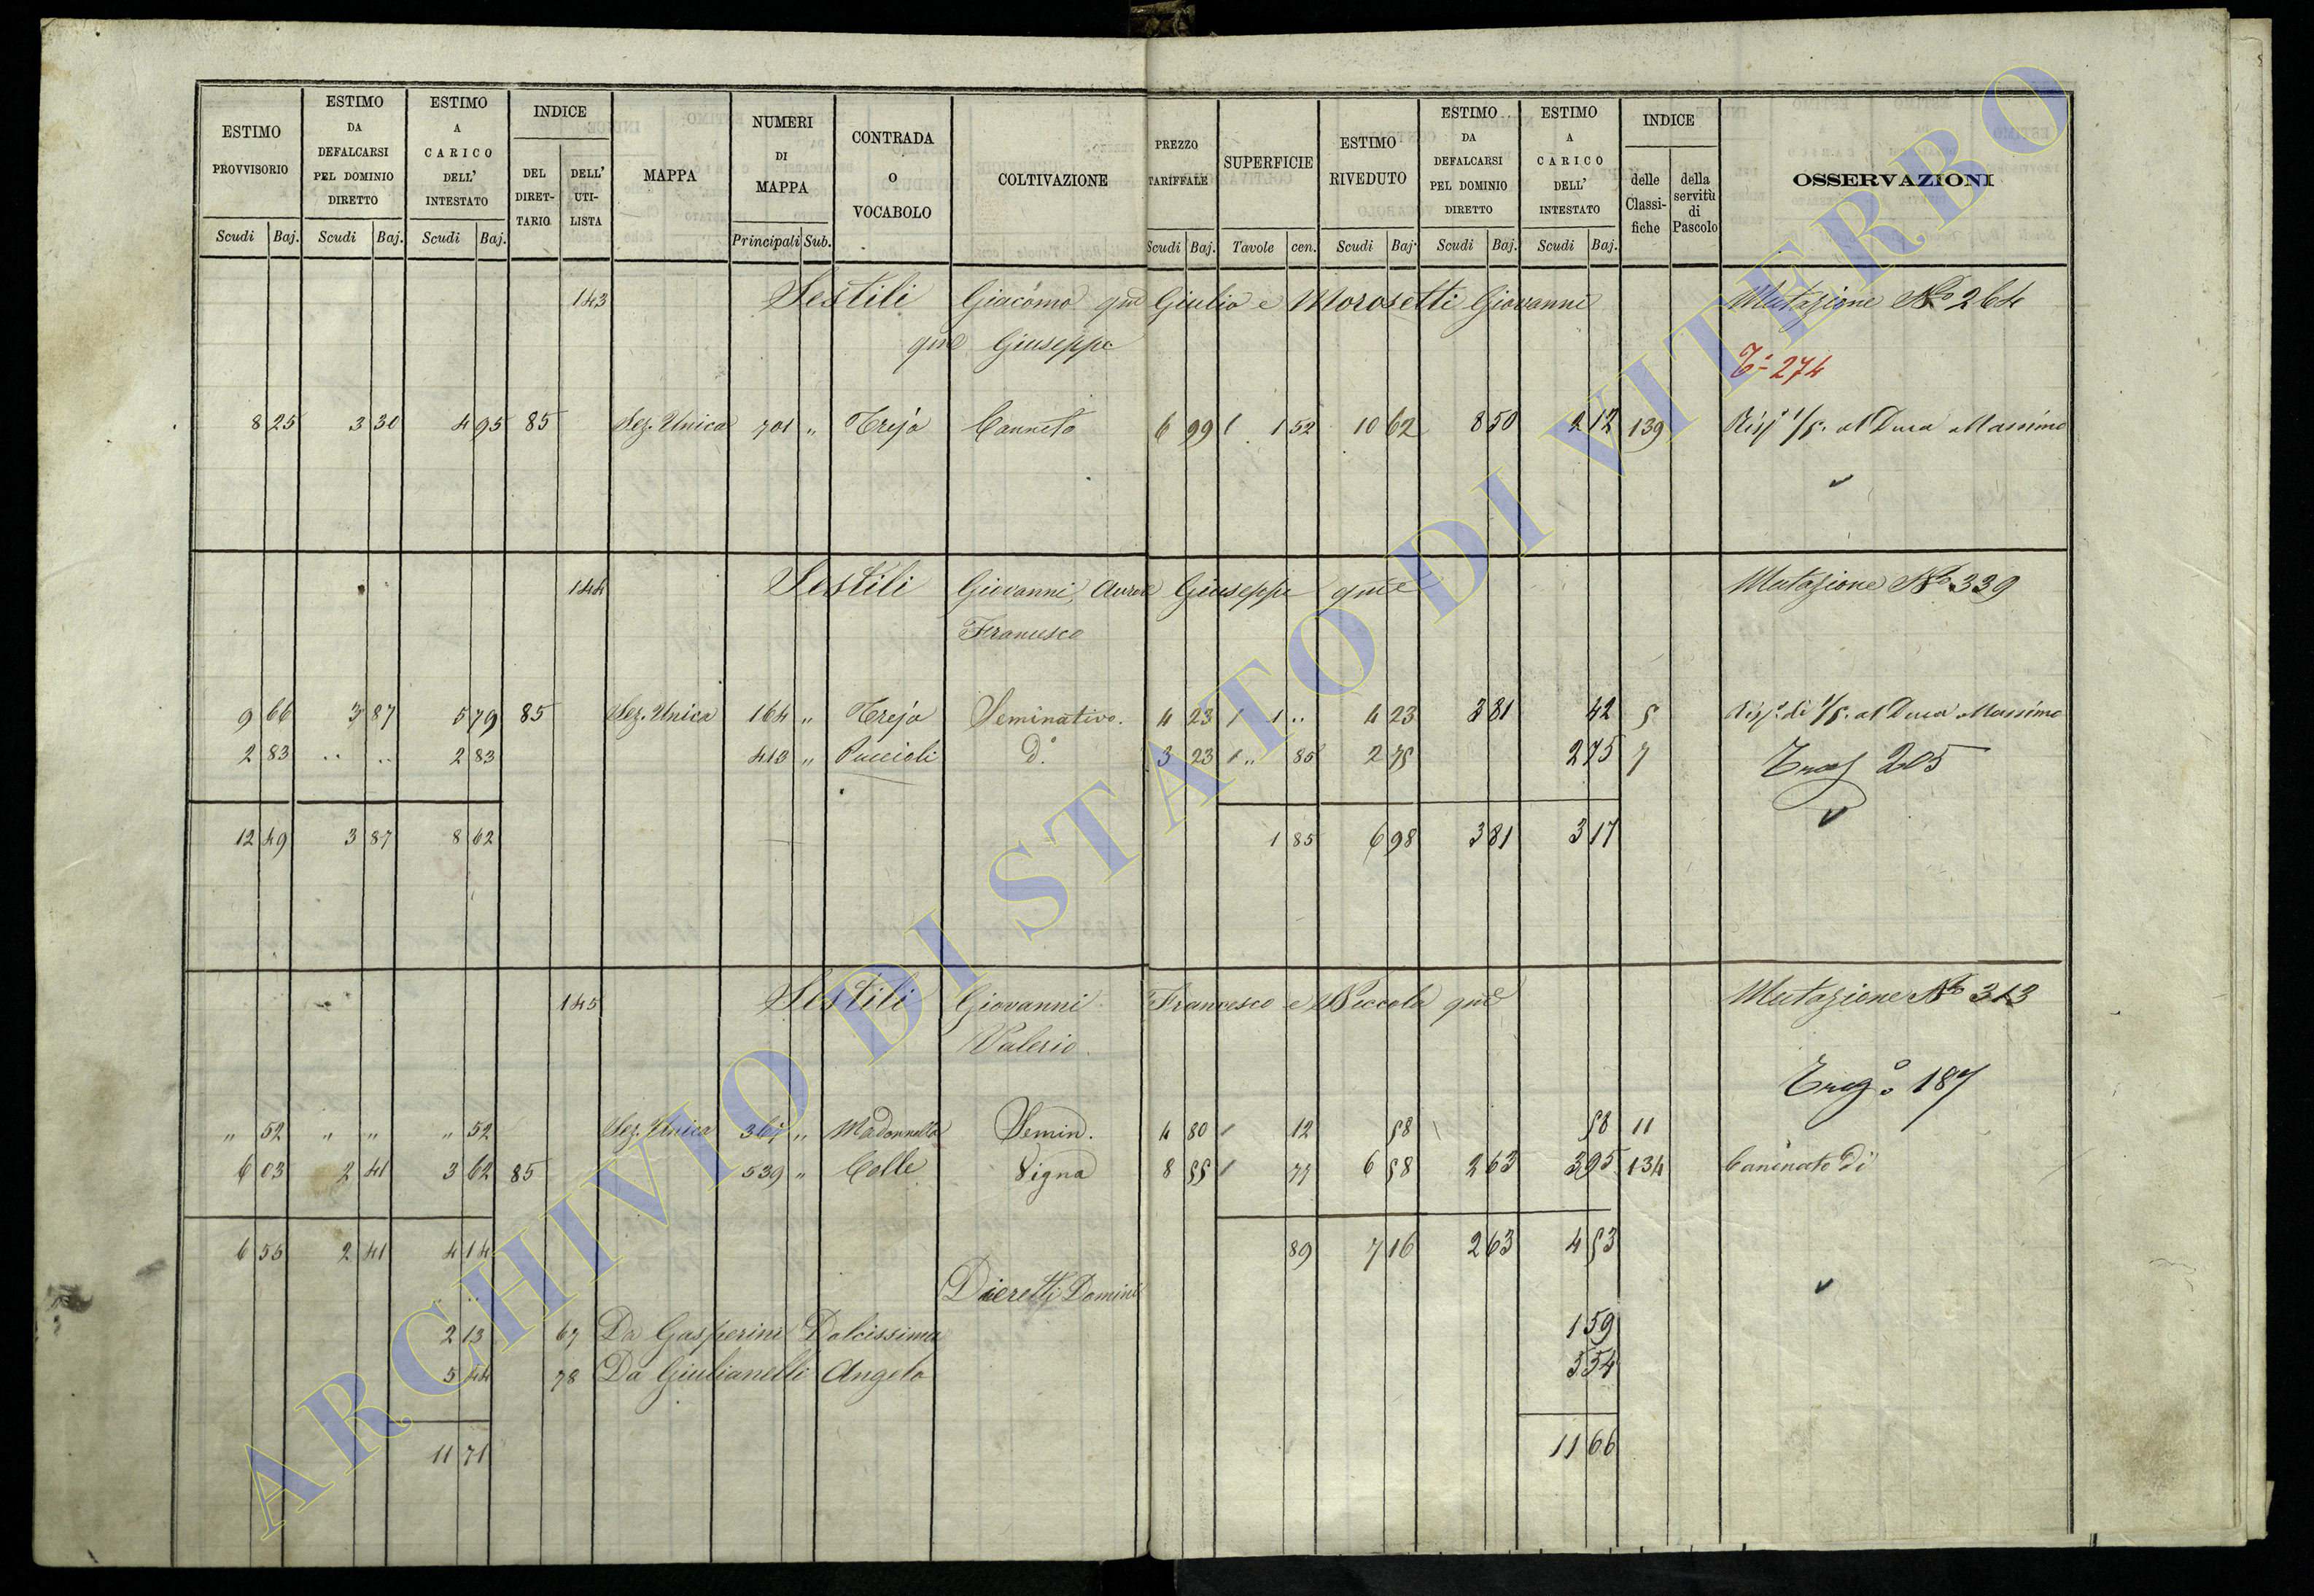 ESTIMO PROVVISORIO Scudi Baj.
ESTIMO DA DEFALCARSI PEL DOMINIO DIRETTO Scudi Baj.
ESTIMO A CARICO DELL' INTESTATO Scudi Baj.
INDICE DEL DIRET- TARIO DELL' UTI- LISTA
MAPPA
NUMERI DI MAPPA Principali Sub.
CONTRADA O VOCABOLO
COLTIVAZIONE
PREZZO TARIFFALE Scudi Baj.
SUPERFICIE Tavole cen.
ESTIMO RIVEDUTO Scudi Baj.
ESTIMO DA DEFALCARSI PEL DOMINIO DIRETTO Scudi Baj.
ESTIMO A CARICO DELL' INTESTATO Scudi Baj.
INDICE delle Classi- fiche della servitù di Pascolo
OSSERVAZIONI
143 Sestili Giacomo que Giulio e Morosetti Giovanni Mutazione No 264
que Giuseppe
To 274
8 25 3 30 4 95 85 Sez. Unica 701 " Treja Canneto 6 99 1 1 52 10 62 8 50 2 12 139 Risp 1/5 al Duca Massimo
144 Sestili Giovanni, Giuseppe que Mutazione No 339
Francesco
9 66 3 87 5 79 85 Sez. Unica 164 " Treja Seminativo. 4 23 1 1 .. 4 23 3 81 42 5 Risp. di 1/5 al Duca Massimo
2 83 .. .. 2 83 413 " Puccioli do. 3 23 1 " 85 2 75 2 75 7 205
12 49 3 87 8 62 1 85 6 98 3 81 3 17
145 Sestili Giovanni Francesco e Niccola que Mutazione No 313
Valerio.
187
" 52 " " " 52 Sez. Unica 367 " Madonnella Semin. 4 80 1 12 58 58 11
6 03 2 41 3 62 85 539 " Colle Vigna 8 55 1 77 6 58 2 63 3 95 134 Caninato di
6 55 2 41 4 14 89 7 16 2 63 4 53
Dieretti Domini
2 13 67 Da Gasperini Dolcissima 1 59
5 44 78 Da Giulianelli Angelo 5 54
11 71 11 66
ARCHIVIO DI STATO DI VITERBO